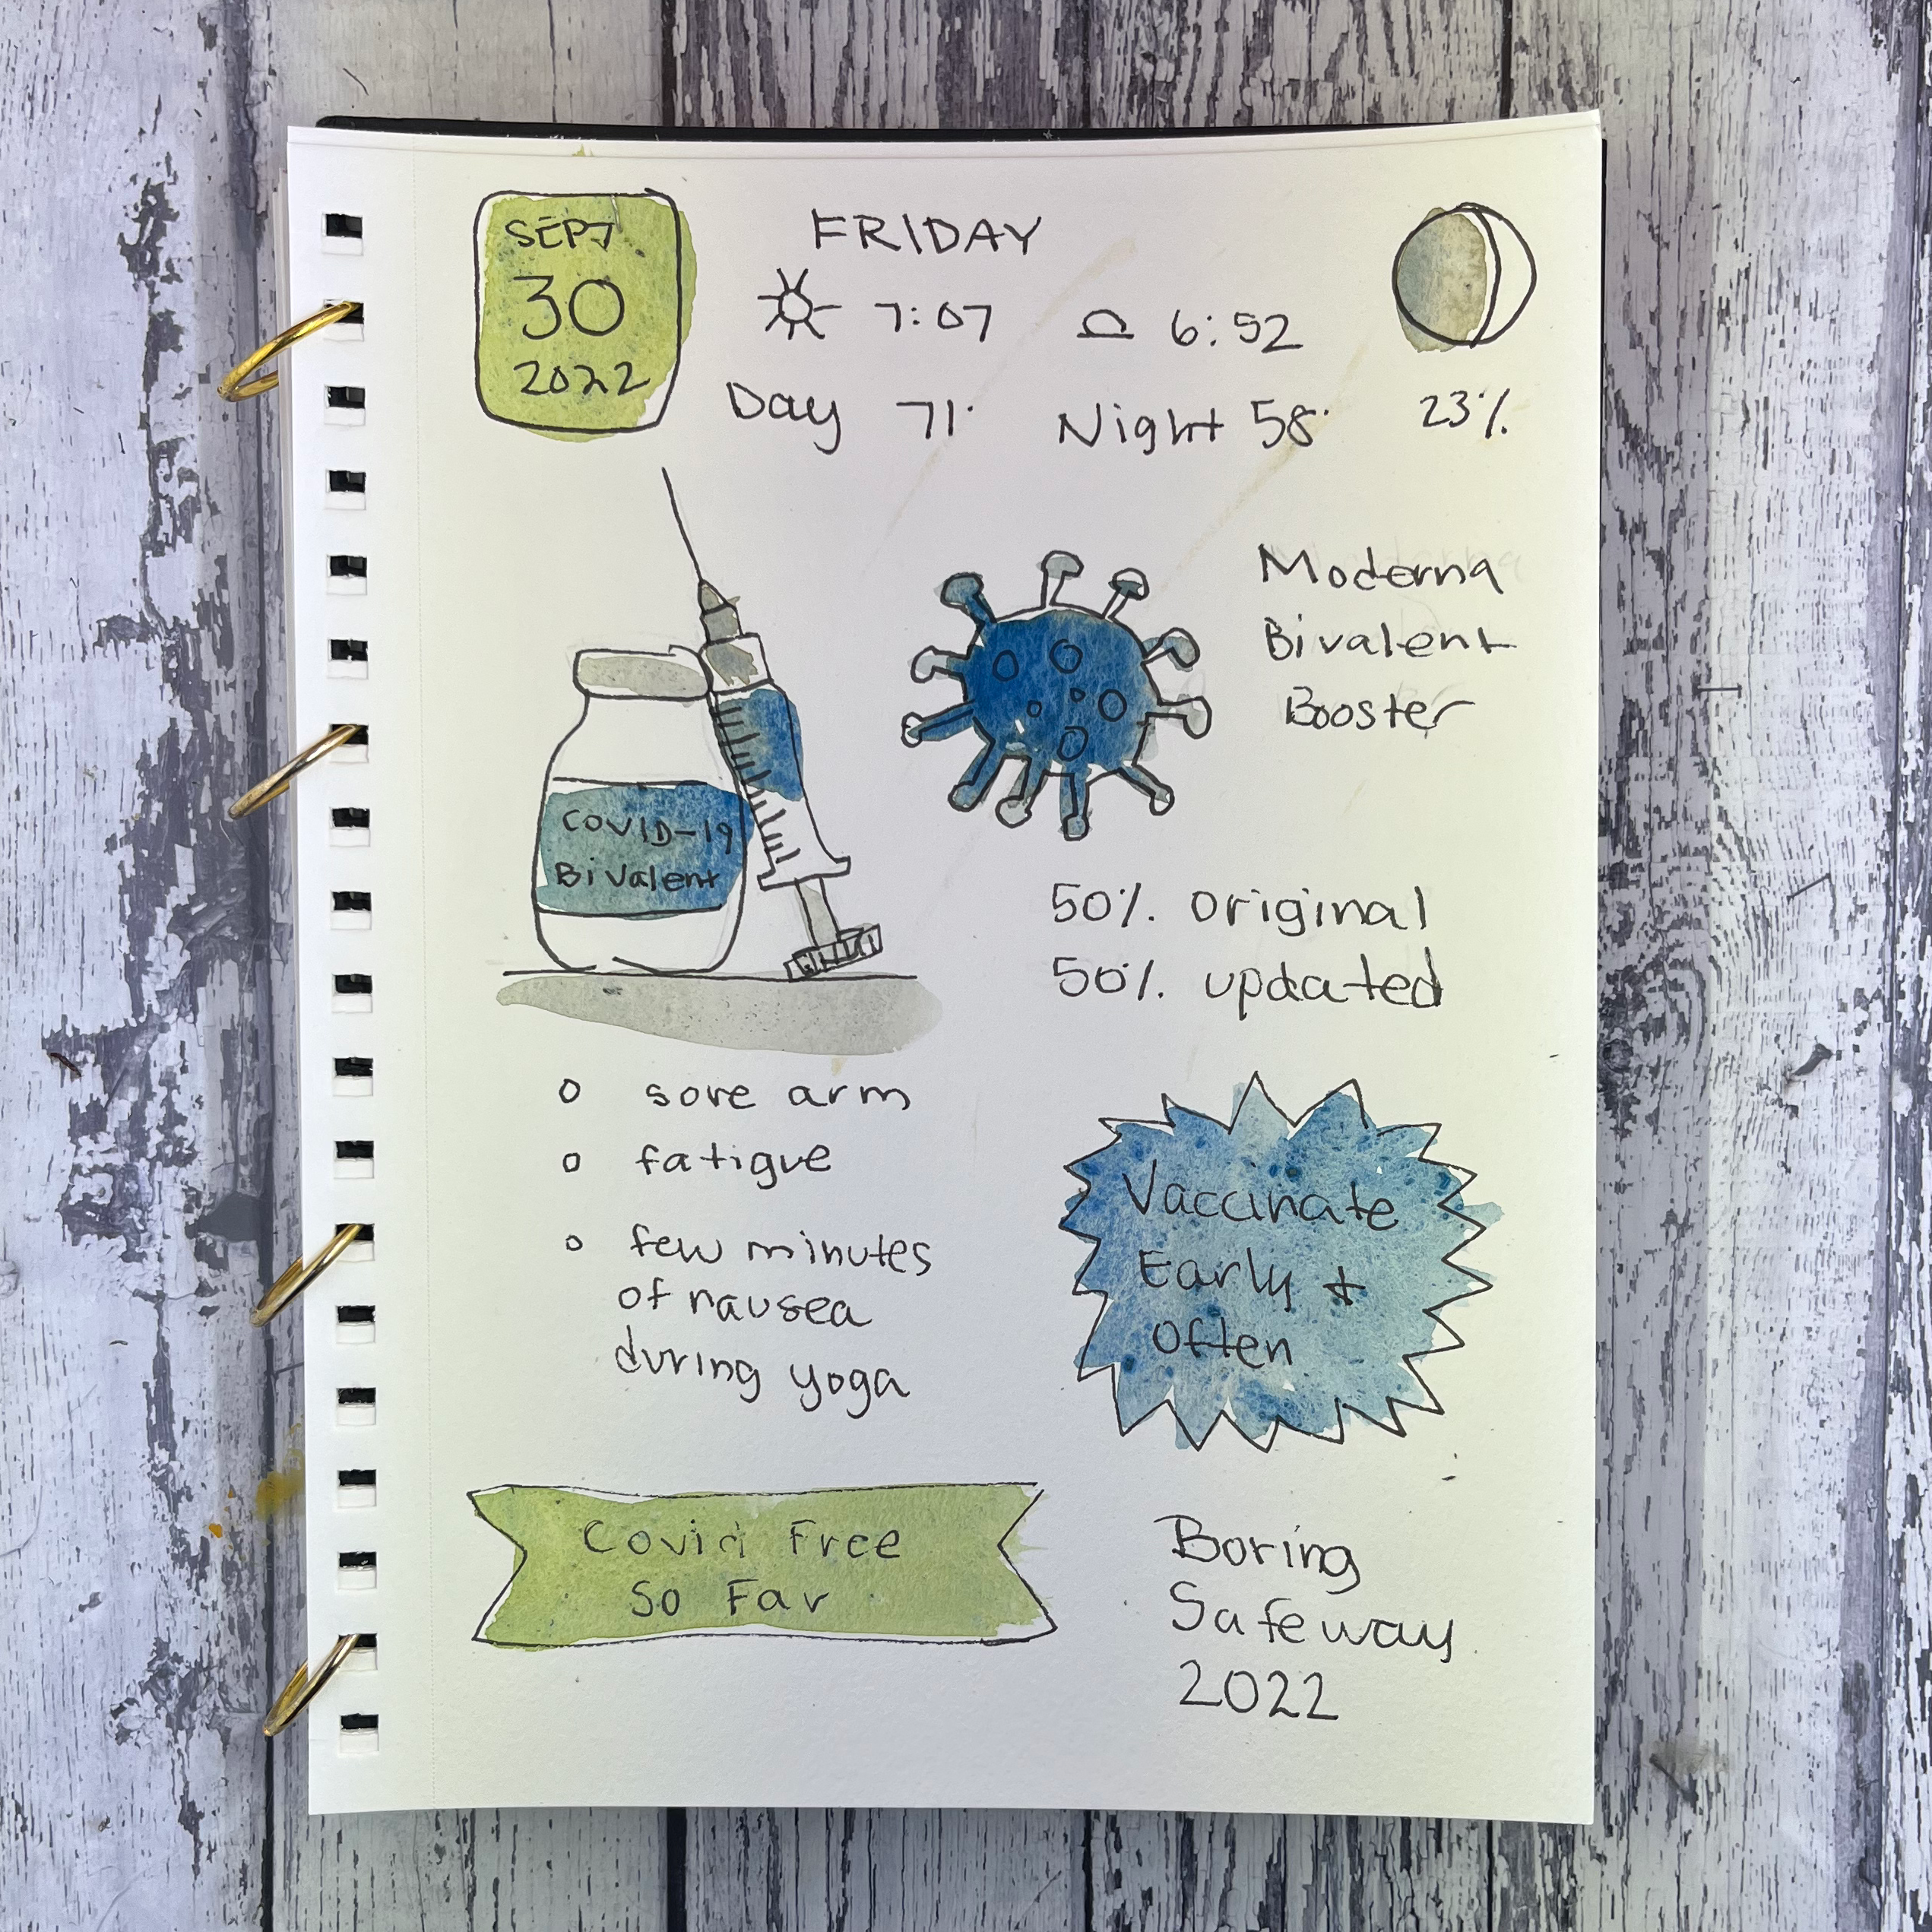 SEPT
30
2022
FRIDAY
7:07 6:52
Day 71° Night 58°
23%
Moderna
Bivalent
Booster
COVID-19
Bivalent
50% original
50% updated
o sore arm
o fatigue
o few minutes
of nausea
during yoga
Vaccinate
Early &
Often
Covid Free
So Far
Boring
Safeway
2022